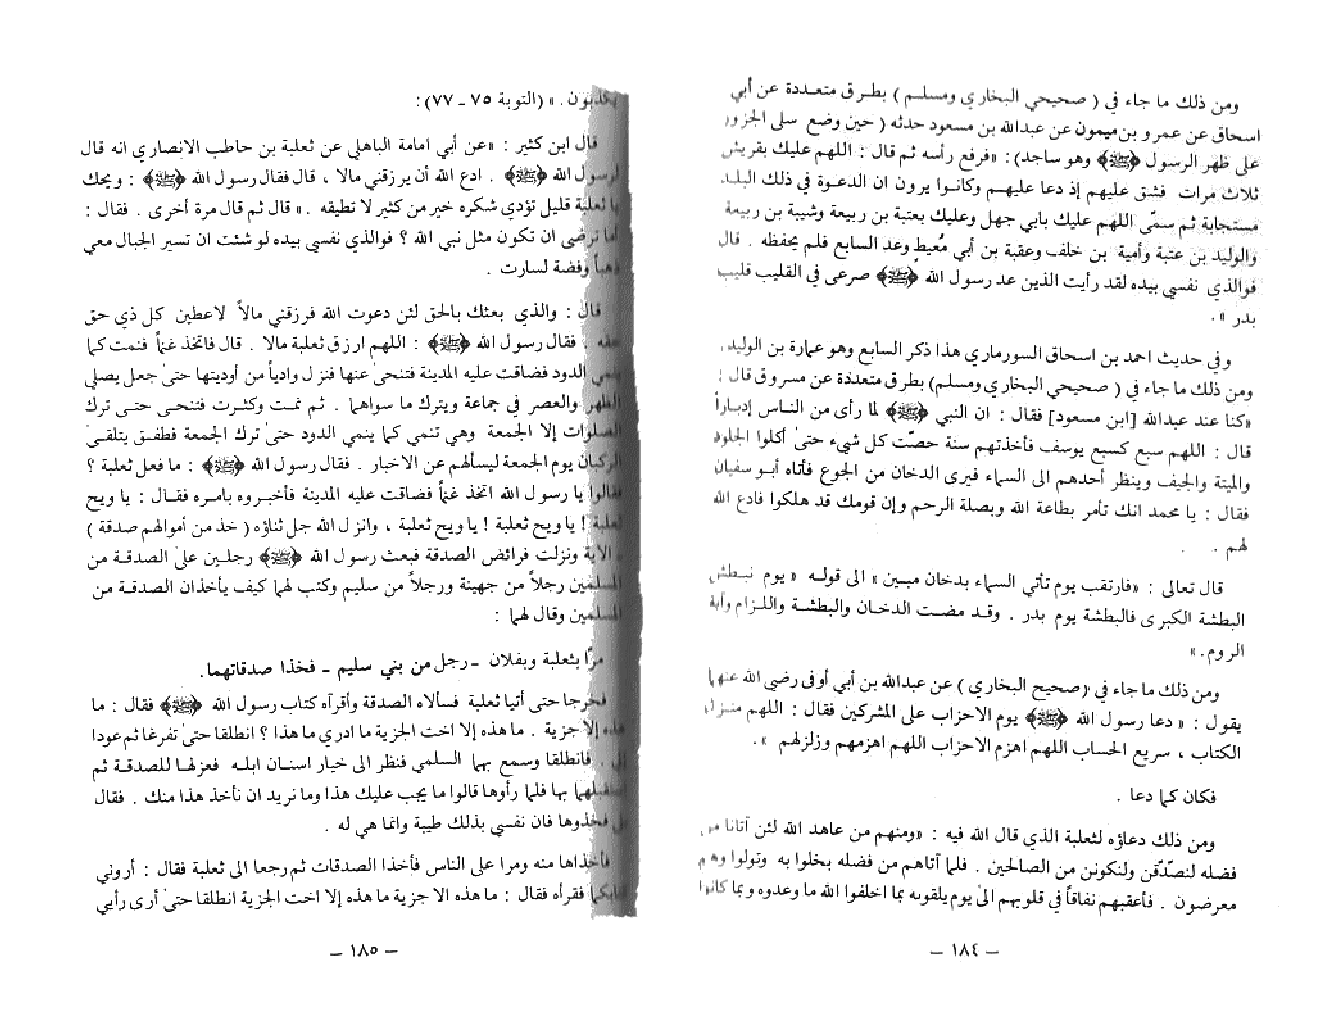 ومن ذلك ما جاء في ( صحيحي البخاري ومسلم ) بطرق متعددة عن أبي
اسحاق عن عمرو بن ميمون عن عبدالله بن مسعود حدثه ( حين وضع سلى الجزور
على ظهر الرسول ﴿ﷺ﴾ وهو ساجد): «فرفع رأسه ثم قال : اللهم عليك بقريش
ثلاث مرات فشق عليهم إذ دعا عليهم وكانوا يرون ان الدعوة في ذلك البلد
مستجابة ثم سمّى اللهم عليك بابي جهل وعليك بعتبة بن ربيعة وشيبة بن ربيعة
والوليد بن عتبة وأمية بن خلف وعقبة بن أبي مُعيط وعد السابع فلم يحفظه . قال
فوالذي نفسي بيده لقد رأيت الذين عد رسول الله ﴿ﷺ﴾ صرعى في القليب قليب
بدر ».
وفي حديث احمد بن اسحاق السورماري هذا ذكر السابع وهو عمارة بن الوليد.
ومن ذلك ما جاء في ( صحيحي البخاري ومسلم) بطرق متعددة عن مسروق قال :
«كنا عند عبدالله [ابن مسعود] فقال : ان النبي ﴿ﷺ﴾ لما رأى من الناس إدباراً
قال : اللهم سبع كسبع يوسف فأخذتهم سنة حصّت كل شيء حتىٰ أكلوا الجلود
والميتة والجيف وينظر أحدهم الى السماء فيرى الدخان من الجوع فأتاه أبو سفيان
فقال : يا محمد انك تأمر بطاعة الله وبصلة الرحم وإن قومك قد هلكوا فادع الله
لهم .
قال تعالى : «فارتقب يوم تأتي السماء بدخان مبين» الى قوله « يوم نبطش
البطشة الكبرى فالبطشة يوم بدر . وقد مضت الدخان والبطشة واللزام وآية
الروم.»
ومن ذلك ما جاء في (صحيح البخاري ) عن عبدالله بن أبي أوفى رضي الله عنهما
يقول : « دعا رسول الله ﴿ﷺ﴾ يوم الاحزاب على المشركين فقال : اللهم منزل
الكتاب ، سريع الحساب اللهم اهزم الاحزاب اللهم اهزمهم وزلزلهم ».
فكان كما دعا .
ومن ذلك دعاؤه لثعلبة الذي قال الله فيه : «ومنهم من عاهد الله لئن آتانا من
فضله لنصدّقن ولنكونن من الصالحين . فلما آتاهم من فضله بخلوا به وتولوا وهم
معرضون . فأعقبهم نفاقاً في قلوبهم الىٰ يوم يلقونه بما اخلفوا الله ما وعدوه وبما كانوا
– ١٨٤ –
يكذبون . » (التوبة ٧٥ - ٧٧):
قال ابن كثير : «عن أبي امامة الباهلي عن ثعلبة بن حاطب الانصاري انه قال
لرسول الله ﴿ﷺ﴾ . ادع الله أن يرزقني مالا ، قال فقال رسول الله ﴿ﷺ﴾ : ويحك
يا ثعلبة قليل تؤدي شكره خير من كثير لا تطيقه .» قال ثم قال مرة أخرى . فقال :
أما ترضى ان تكون مثل نبي الله ؟ فوالذي نفسي بيده لو شئت ان تسير الجبال معي
ذهباً وفضة لسارت .
قال : والذي بعثك بالحق لئن دعوت الله فرزقني مالاً لاعطين كل ذي حق
حقه . فقال رسول الله ﴿ﷺ﴾ : اللهم ارزق ثعلبة مالا . قال فاتخذ غنماً فنمت كما
ينمي الدود فضاقت عليه المدينة فتنحىٰ عنها فنزل وادياً من أوديتها حتىٰ جعل يصلي
الظهر والعصر في جماعة ويترك ما سواهما . ثم نمت وكثرت فتنحى حتى ترك
الصلوات إلا الجمعة وهي تنمي كما ينمي الدود حتىٰ ترك الجمعة فطفق يتلقىٰ
الركبان يوم الجمعة ليسألهم عن الاخبار . فقال رسول الله ﴿ﷺ﴾ : ما فعل ثعلبة ؟
فقالوا يا رسول الله اتخذ غنماً فضاقت عليه المدينة فأخبروه بامره فقال : يا ويح
ثعلبة ! يا ويح ثعلبة ! يا ويح ثعلبة ، وانزل الله جل ثناؤه ( خذ من أموالهم صدقة )
الآية ونزلت فرائض الصدقة فبعث رسول الله ﴿ﷺ﴾ رجلين علىٰ الصدقة من
المسلمين رجلاً من جهينة ورجلاً من سليم وكتب لهما كيف يأخذان الصدقة من
المسلمين وقال لهما :
مرّا بثعلبة وبفلان - رجل من بني سليم - فخذا صدقاتهما.
فخرجا حتى أتيا ثعلبة فسألاه الصدقة وأقرآه كتاب رسول الله ﴿ﷺ﴾ فقال : ما
هذه إلا جزية . ما هذه إلا اخت الجزية ما ادري ما هذا ؟ انطلقا حتىٰ تفرغا ثم عودا
إلي . فانطلقا وسمع بهما السلمي فنظر الى خيار اسنان ابله فعزلها للصدقة ثم
استقبلهما بها فلما رأوها قالوا ما يجب عليك هذا وما نريد ان نأخذ هذا منك . فقال
بلى فخذوها فان نفسي بذلك طيبة وانما هي له .
فأخذاها منه ومرا على الناس فأخذا الصدقات ثم رجعا الى ثعلبة فقال : أروني
كتابكما فقرأه فقال : ما هذه الا جزية ما هذه إلا اخت الجزية انطلقا حتىٰ أرى رأيي
– ١٨٥ –